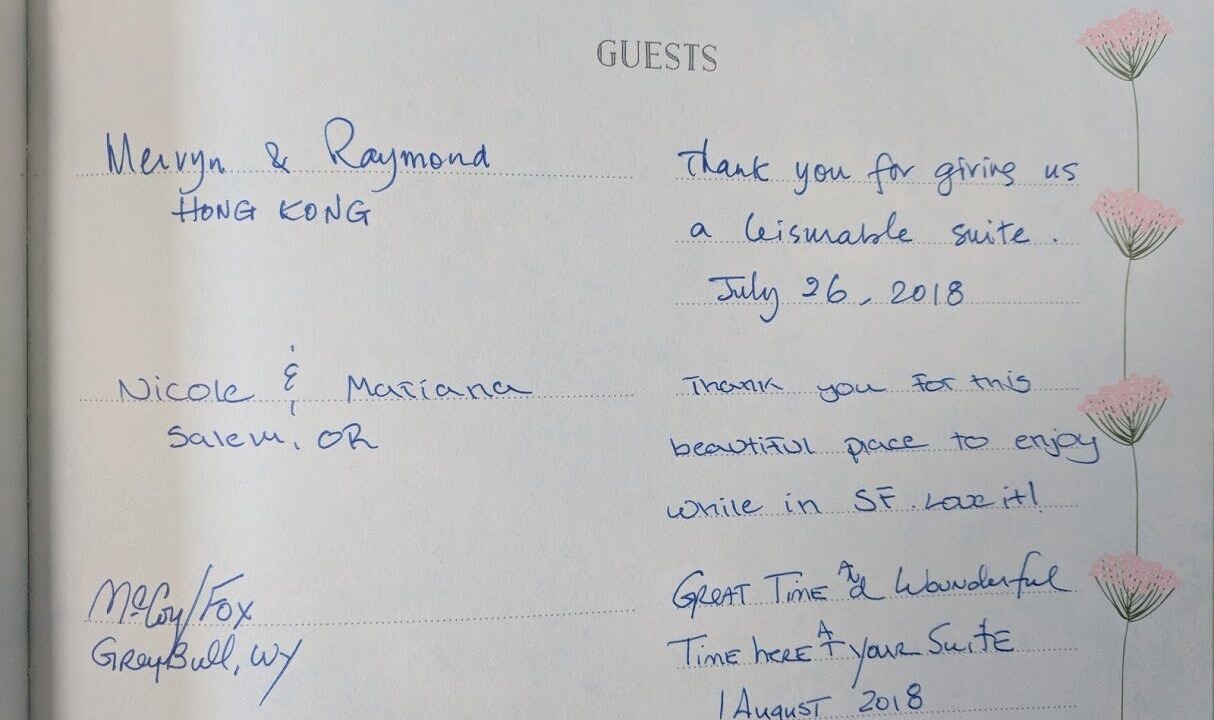 GUESTS
Mervyn & Raymond
HONG KONG
Thank you for giving us
a leisurable suite.
July 26, 2018
Nicole & Mariana
Salem, OR
Thank you for this
beautiful place to enjoy
while in SF. Love it!
McCoy/Fox
GreyBull, WY
GREAT TIME And Wounderful
TIME here AT your Suite
1 August 2018